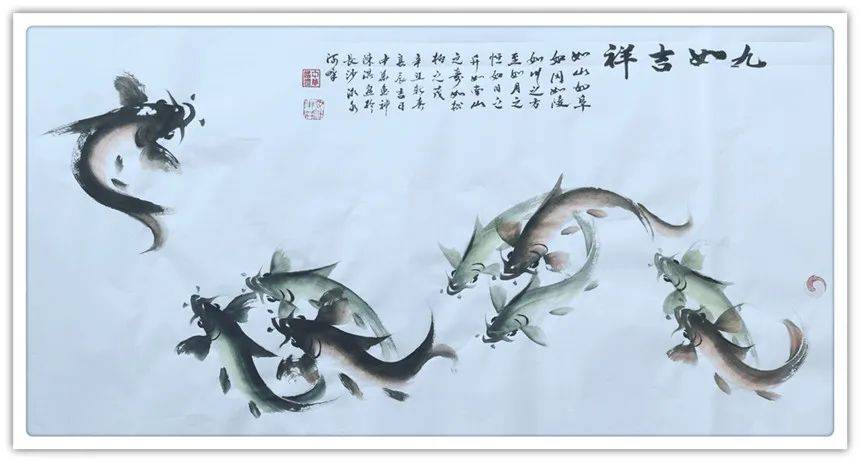 九如吉祥
如山如阜
如冈如陵
如川之方
至如月之
恒如日之
升如南山
之寿如松
柏之茂
辛丑春
良辰吉日
中华鱼神
於
长沙
河畔